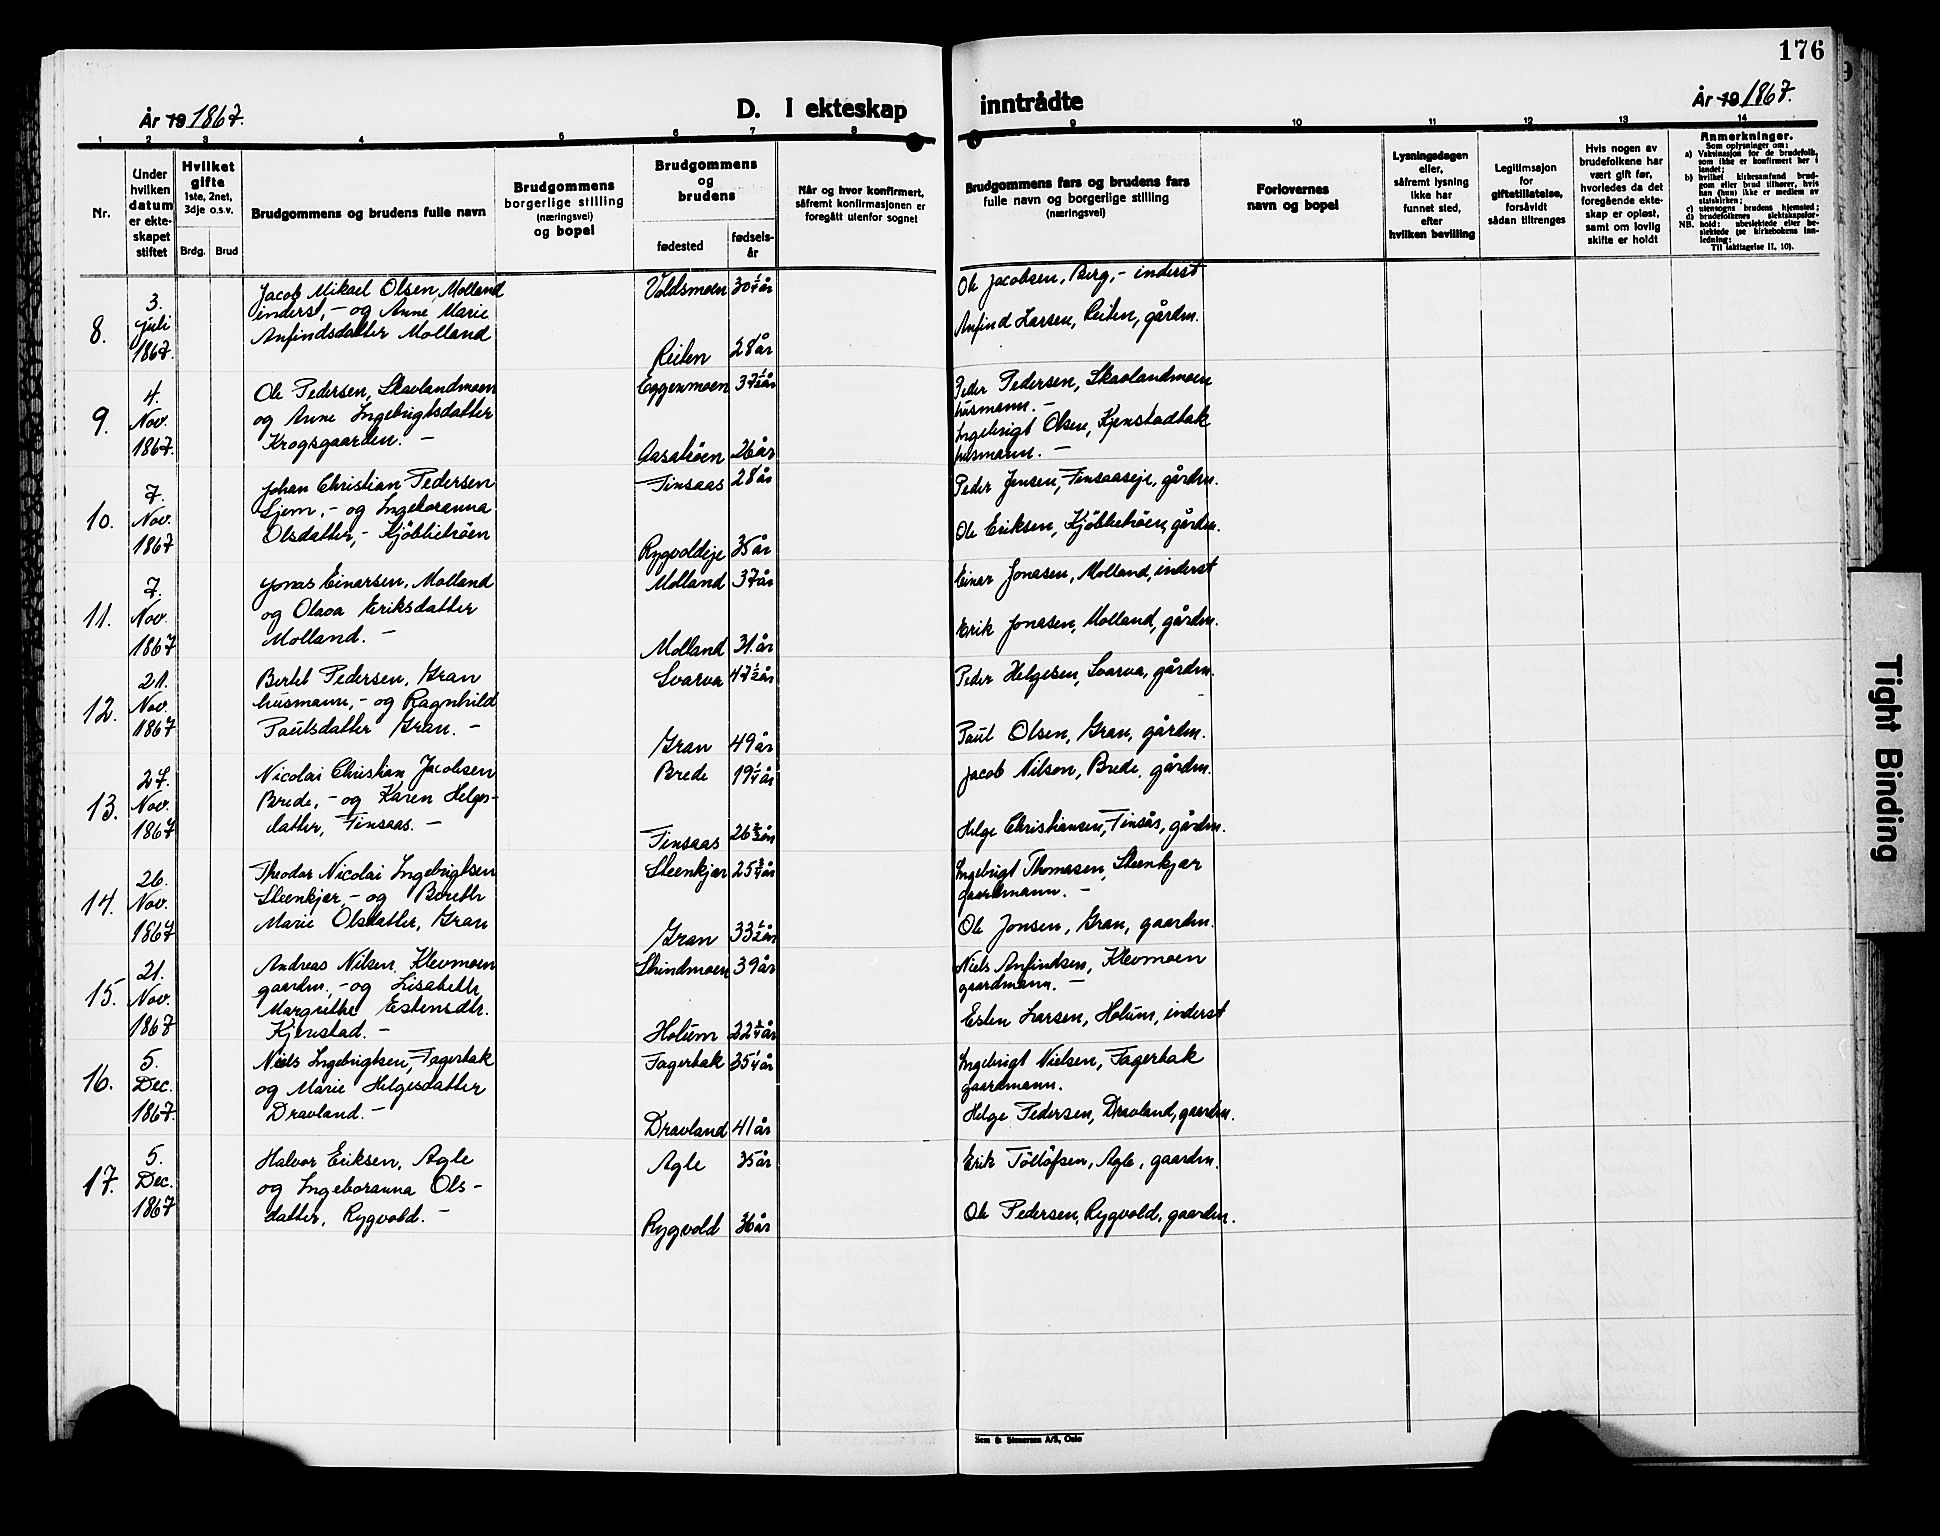 176
År 19 1867.
D. I ekteskap
inntrådte
År 19 1867.
1 2 3 4 5 6 7 8 9 10 11 12 13 14
Nr.
Under
hvilken
datum
er ekte-
skapet
stiftet
Hvilket
gifte
1ste, 2net,
3dje o.s.v.
Brdg. Brud
Brudgommens og brudens fulle navn
Brudgommens
borgerlige stilling
(næringsvei)
og bopel
Brudgommens
og
brudens
fødested
fødsels-
år
Når og hvor konfirmert,
såfremt konfirmasjonen er
foregått utenfor sognet
Brudgommens fars og brudens fars
fulle navn og borgerlige stilling
(næringsvei)
Forlovernes
navn og bopel
Lysningsdagen
eller,
såfremt lysning
ikke har
funnet sted,
efter
hvilken bevilling
Legitimasjon
for
giftetillatelse,
forsåvidt
sådan tiltrenges
Hvis nogen av
brudefolkene har
vært gift før,
hvorledes da det
foregående ekte-
skap er opløst,
samt om lovlig
skifte er holdt
Anmerkninger.
Som oplysninger om:
a) Vaksinasjon for de brudefolk,
som ikke er konfirmert her i
landet;
b) hvilket kirkesamfund brud-
gom eller brud tilhører, hvis
han (hun) ikke er medlem av
statskirken;
c) utensogns brudens hjemsted;
d) brudefolkenes slektskapsfor-
hold: ubeslektede eller be-
slektede (se kirkebokens inn-
ledning;
NB.
Til iakttagelse II, 10).
8.
3.
Juli
1867.
Jacob Mikael Olsen, Molland
inderst, - og Anne Marie
Anfindsdatter Molland
Voldsmoen 30 1/4 år
Reiten 28 år
Ole Jacobsen, Berg, - inderst
Anfind Larsen, Reiten, gårdm.
9.
4.
Nov.
1867.
Ole Pedersen, Skavlandmoen
og Anne Ingebrigtsdatter
Krogsgaarden. -
Eggenmoen 37 1/2 år
Aasatrøen 26 år
Peder Pedersen, Skavlandmoen
husmann. -
Ingebrigt Olsen, Kjenstadbak
husmann. -
10.
7.
Nov.
1867
Johan Christian Pedersen
Sjem, - og Ingeboranna
Olsdatter, - Kjöbbeltröen
Finsaas 28 år
Rygvoldeje 35 år
Peder Jensen, Finsaaseje, gårdm.
Ole Eriksen, Kjöbbeltröen, gårdm.
11.
7.
Nov.
1867
Jonas Einarsen, Molland
og Olava Eriksdatter
Molland. -
Molland 37 år
Molland 31 år
Einar Jonasen, Molland, inderst
Erik Jonasen, Molland, gårdm.
12.
21.
Nov.
1867
Bertel Pedersen, Gran
husmann, - og Ragnhild
Paulsdatter Gran. -
Svarva 47 1/2 år
Gran 49 år
Peder Helgesen, Svarva, gårdm.
Paul Olsen, Gran, gårdm.
13.
27.
Nov.
1867
Nicolai Christian Jacobsen
Brede, - og Karen Helges-
datter, Finsaas. -
Brede 19 1/4 år
Finsaas
Jacob Nilson, Brede, gårdm.
Helge Christiansen, Finsås, gårdm.
14.
26.
Nov.
1867
Theodor Nicolai Ingebrigtsen
Steenkjer, - og Berethe
Marie Olsdatter, Gran
Steenkjer 25 3/4 år
Gran 33 1/2 år
Ingebrigt Thomasen, Steenkjer
gaardmann. -
Ole Jonsen, Gran, gaardm.
15.
21.
Nov.
1867
Andreas Nilsen, Klevmoen
gaardm., - og Lisabeth
Margrethe Estensdtr.
Kjenstad. -
39 år
Holum
Niels Anfindsen, Klevmoen
gaardmann. -
Esten Larsen, Holum, inderst
16.
5.
Dec.
1867.
Niels Ingebrigtsen, Fagerbak
og Marie Helgesdatter
Dravland. -
Fagerbak 35 1/4 år
Dravland 41 år
Ingebrigt Nielsen, Fagerbak
gaardmann.
Helge Pedersen, Dravland, gaardm.
17.
5.
Dec.
1867
Halvor Eriksen, Agle
og Ingeboranna Ols-
datter, Rygvold. -
Agle 35 år
Rygvold 36 år
Erik Tollöfsen, Agle, gaardm.
Ole Pedersen, Rygvold, gaardm.
Sem & Stenersen A/S, Oslo
Tight Binding